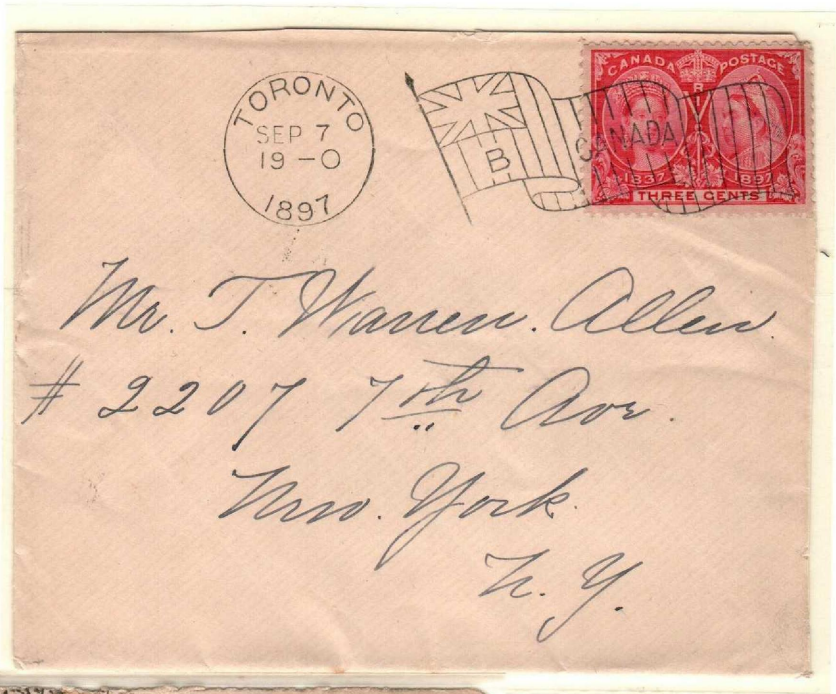 TORONTO
SEP 7
19-0
1897
B
CANADA
CANADA POSTAGE
1837 1897
THREE CENTS
Mr. T. Warren. Allen
# 2207 7th Ave.
New. York.
N. Y.